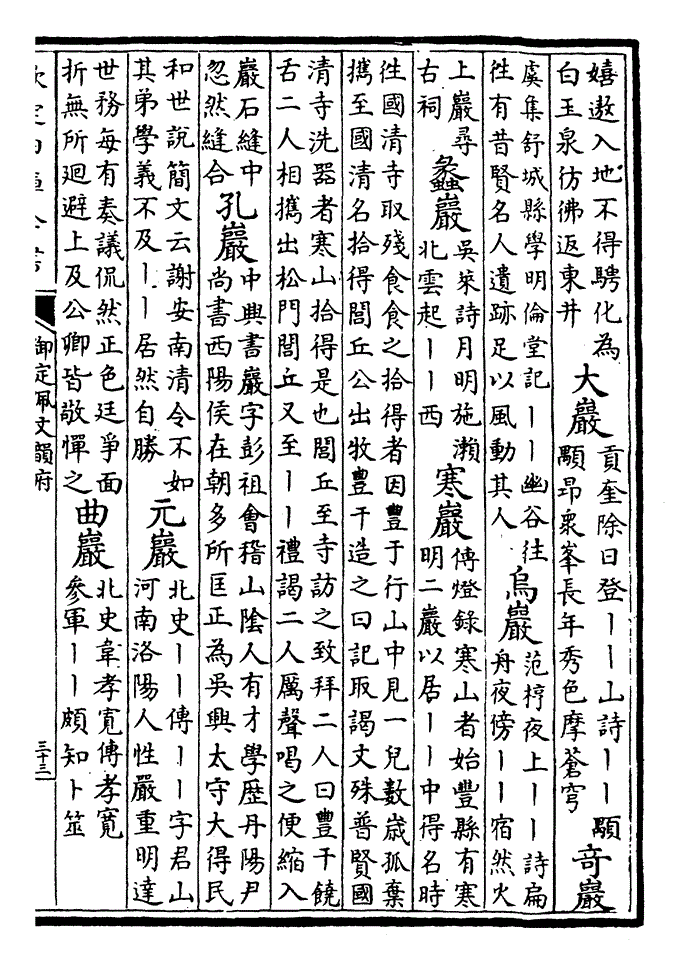 嬉遨入地不得騁化為
白玉泉彷彿返東井
大巖
貢奎除日登丨丨山詩丨丨顒
顒昂衆峯長年秀色摩蒼穹
奇巖
虞集舒城縣學明倫堂記丨丨幽谷往
徃有昔賢名人遺跡足以風動其人
烏巖
范梈夜上丨丨詩扁
舟夜傍丨丨宿然火
上巖尋
古祠
蠡巖
吳萊詩月明施瀨
北雲起丨丨西
寒巖
傳燈錄寒山者始豐縣有寒
明二巖以居丨丨中得名時
徃國清寺取殘食食之拾得者因豊于行山中見一兒數歲孤棄
攜至國清名拾得閭丘公出牧豊干造之曰記取謁文殊普賢國
清寺洗器者寒山拾得是也閭丘至寺訪之致拜二人曰豊干饒
舌二人相攜出松門閭丘又至丨丨禮謁二人厲聲喝之便縮入
巖石縫中
忽然縫合
孔巖
中興書巖字彭祖會稽山陰人有才學歷丹陽尹
尚書西陽侯在朝多所匡正為吳興太守大得民
和世說簡文云謝安南清令不如
其弟學義不及丨丨居然自勝
元巖
北史丨丨傳丨丨字君山
河南洛陽人性嚴重明達
世務每有奏議侃然正色廷爭面
折無所迴避上及公卿皆敬憚之
曲巖
北史韋孝寬傳孝寬
參軍丨丨頗知卜筮
欽定四庫全書
御定佩文韻府
三十三